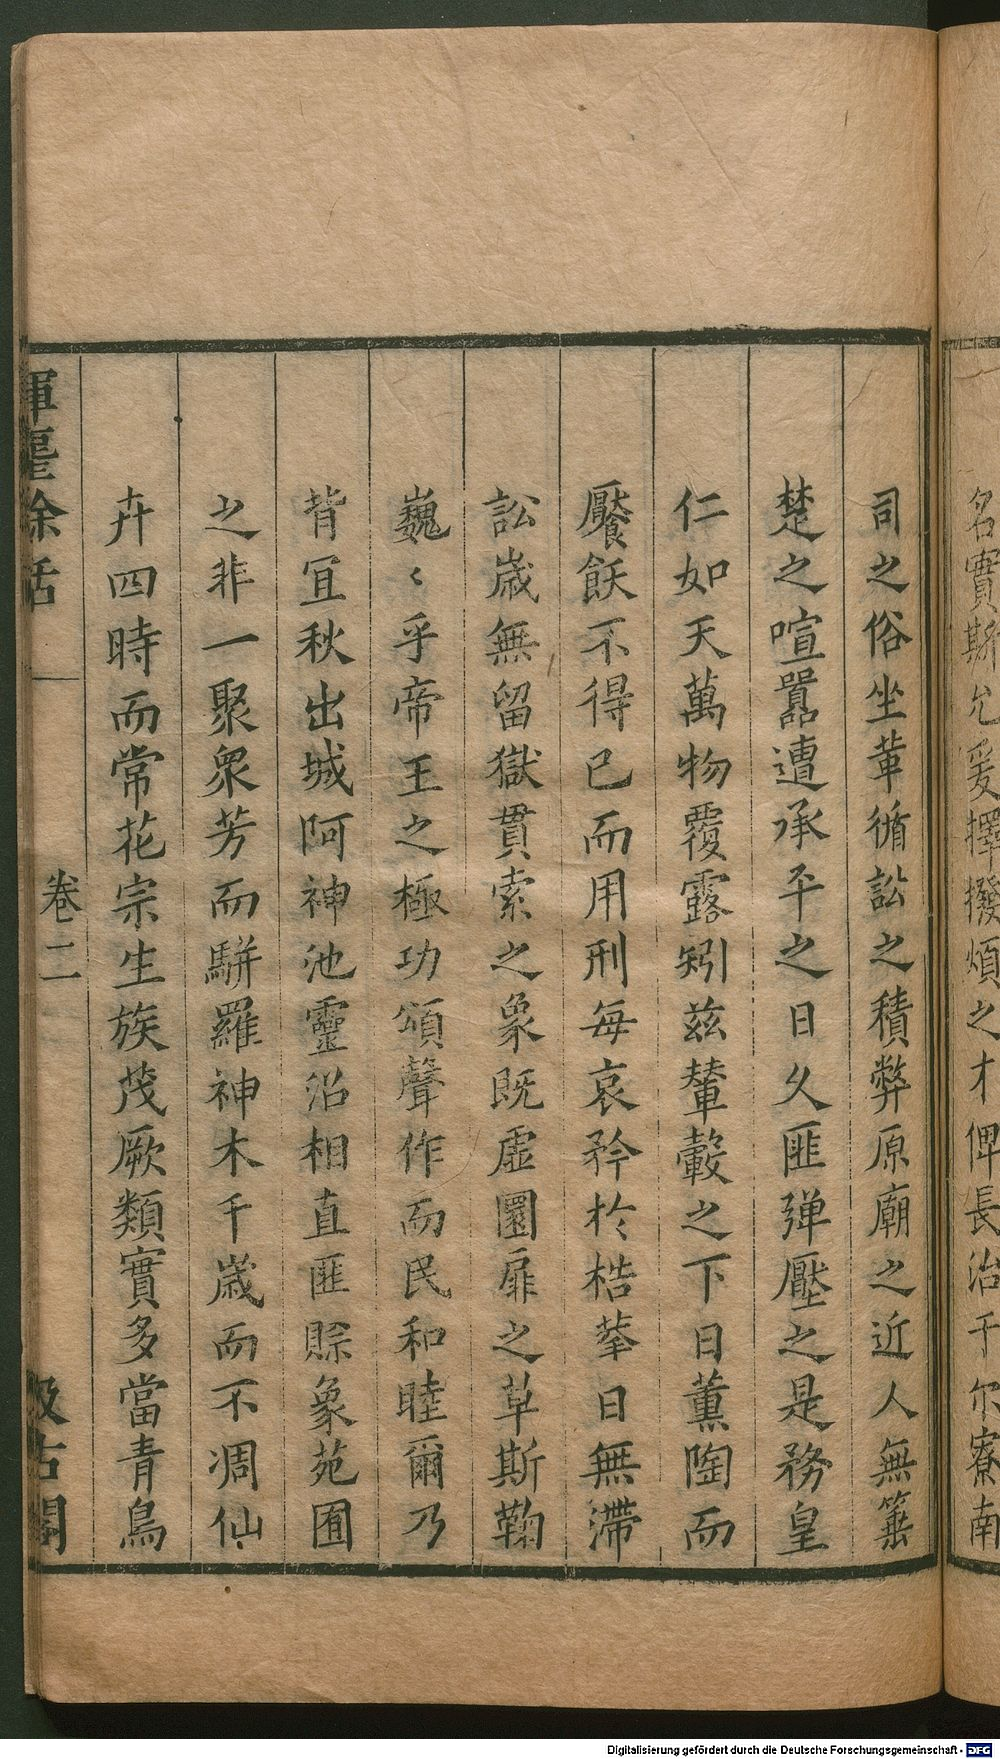 名實斯允爰擇撥煩之才俾長治于尔寮南
司之俗坐革循訟之積弊原廟之近人無箠
楚之喧囂遭承平之日久匪弹壓之是務皇
仁如天萬物覆露矧兹輦轂之下日薰陶而
饜飫不得已而用刑每哀矜於梏拲日無滯
訟歲無留獄貫索之象既虛圜扉之草斯鞠
巍〻乎帝王之極功頌聲作而民和睦爾乃
背冝秋出城阿神池靈沼相直匪賒象苑囿
之非一聚衆芳而駢羅神木千歲而不凋仙
卉四時而常花宗生族茂厥類實多當青鳥
揮麈餘話
卷二
汲古閣
Digitalisierung gefördert durch die Deutsche Forschungsgemeinschaft - DFG